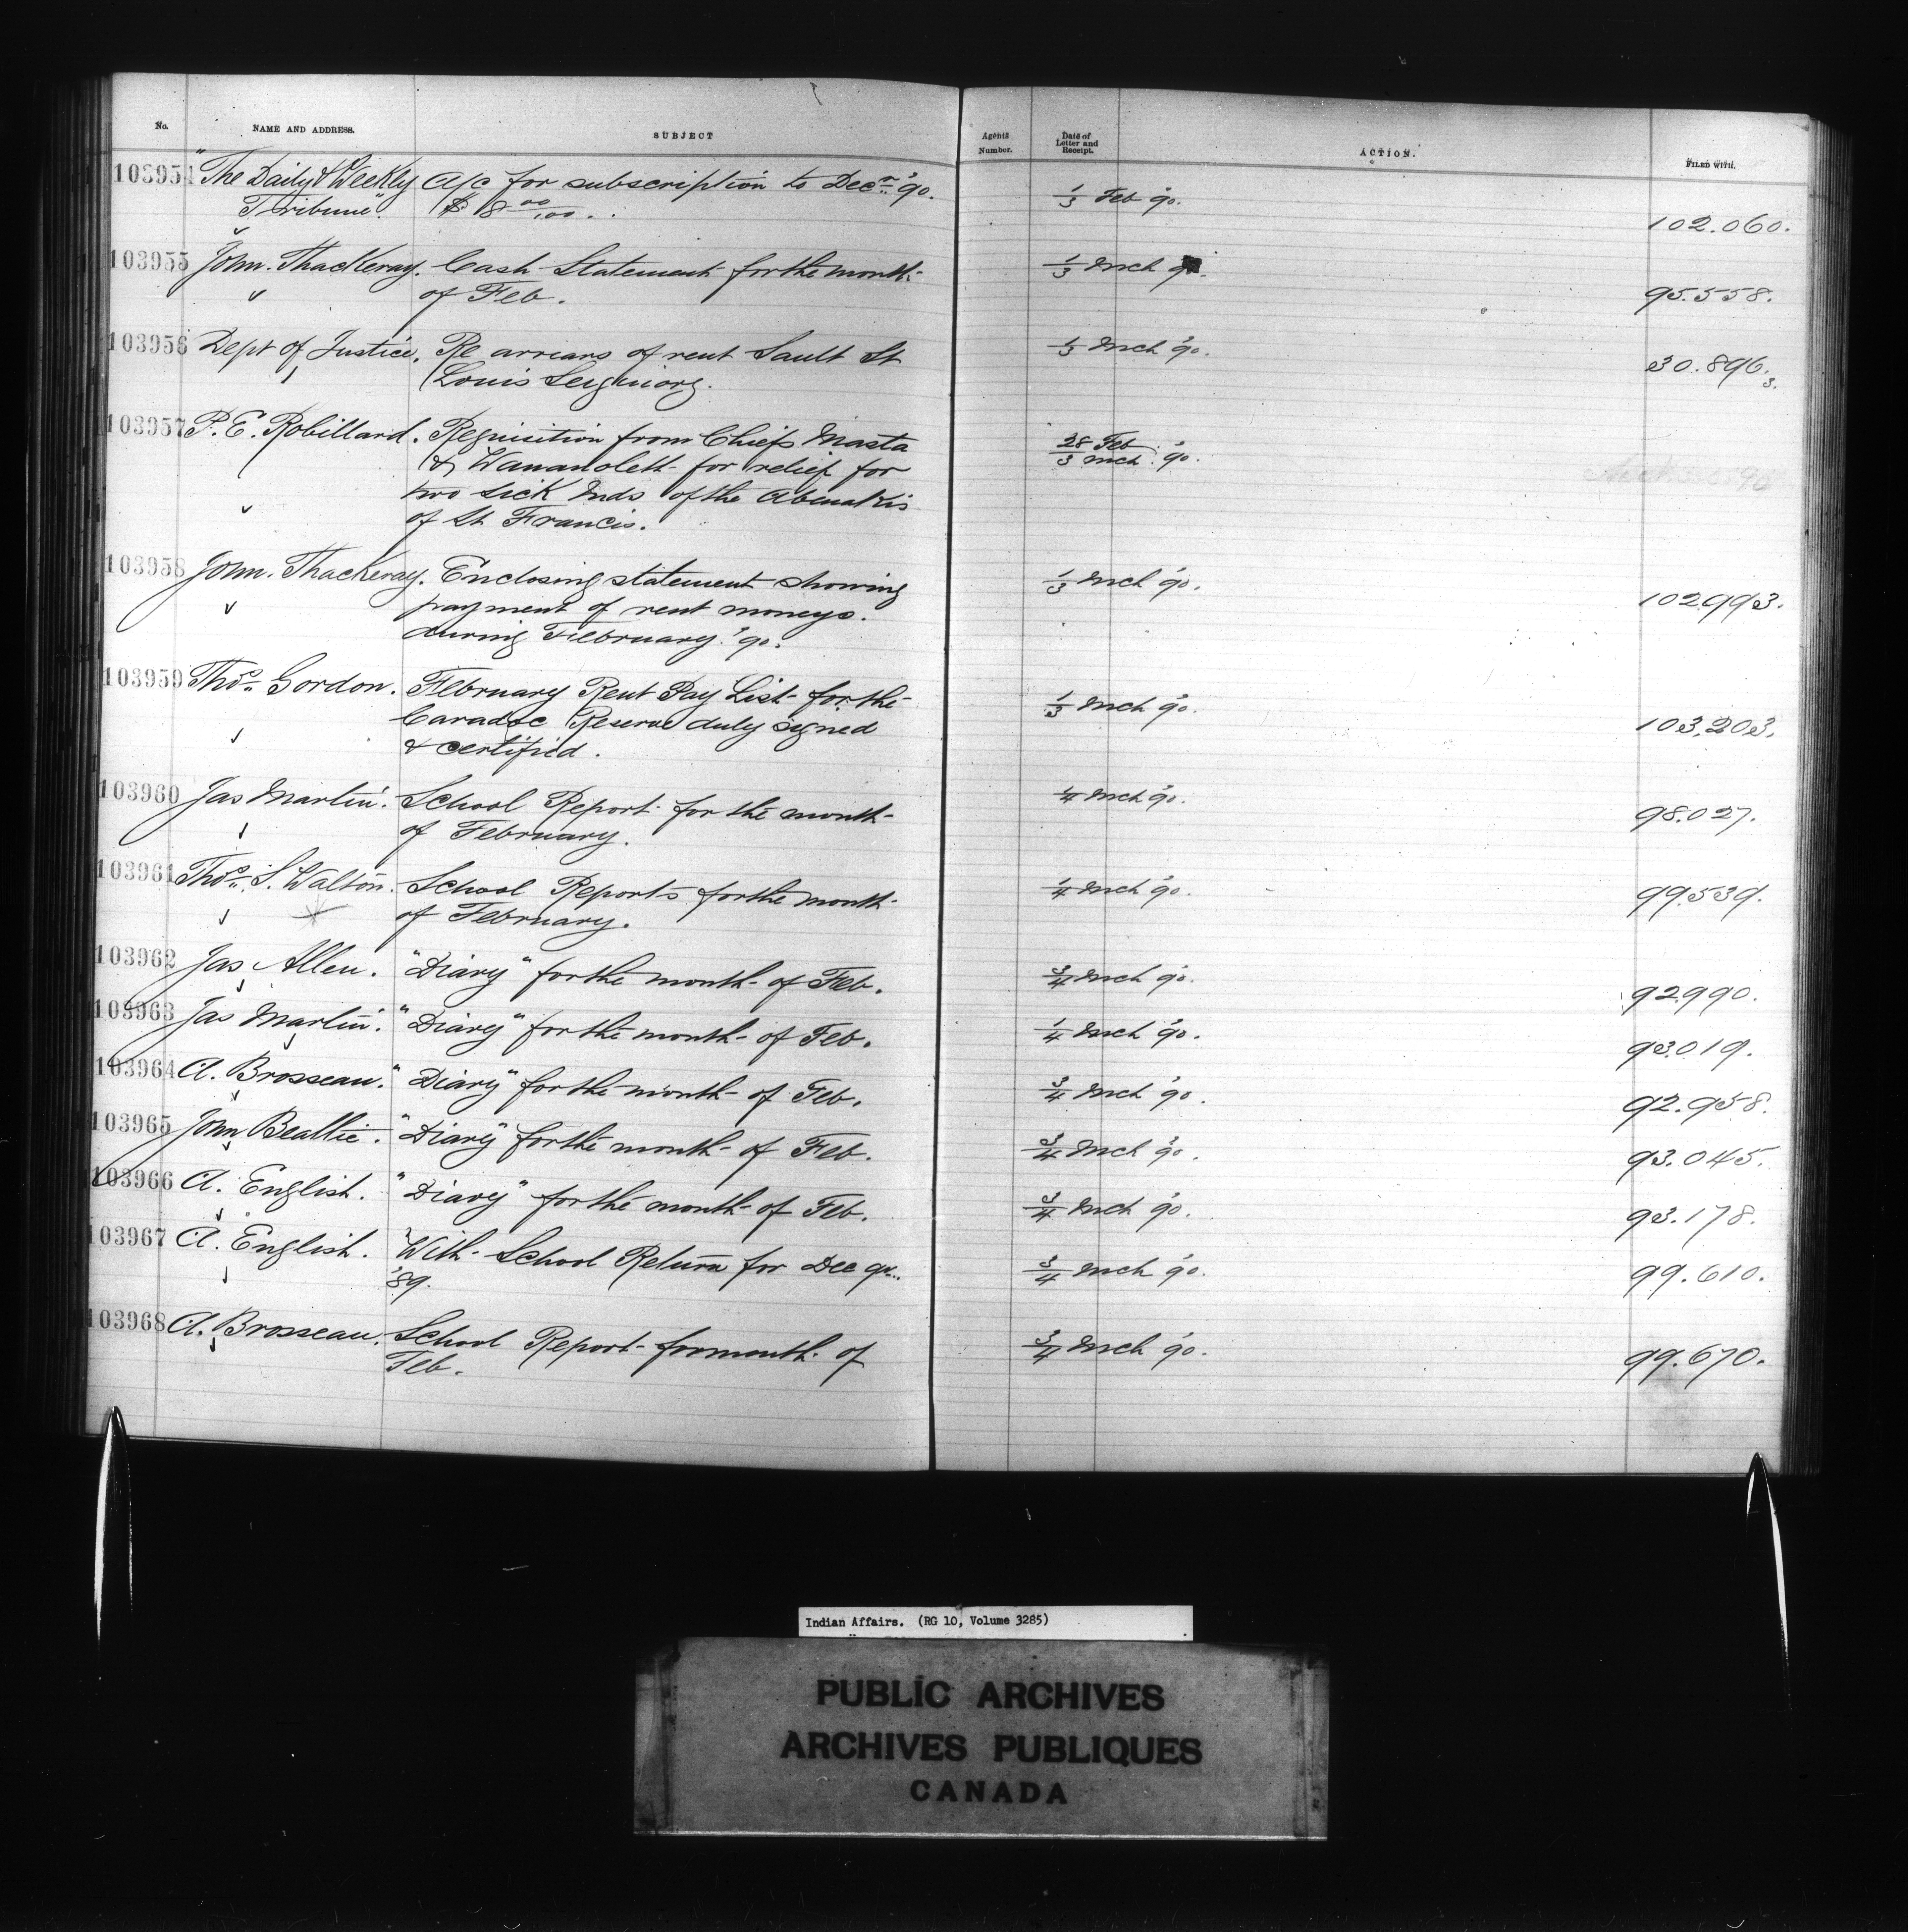 No. NAME AND ADDRESS. SUBJECT Agents Number. Date of Letter and Receipt. ACTION. FILED WITH.
103954 "The Daily & Weekly A/c for subscription to Decr '90. 1/3 Feb '90.
Tribune". $18 00/100. 102.060.
103955 John. Thackeray. Cash Statement for the month 1/3 Mch 90.
of Feb. 95.558.
103956 Dept of Justice. Re arrears of rent Sault St 1/3 Mch '90.
Louis Seigniory. 30.896.3.
103957 P. E. Robillard. Requisition from Chiefs Masta 28 Feb
& Wawanolett for relief for 3 Mch '90.
two sick Inds of the Abenakis
of St Francis.
103958 John. Thackeray. Enclosing statement showing 1/3 Mch '90.
payment of rent moneys. 102993.
during February '90.
103959 Thos. Gordon. February Rent Pay List for the 1/3 Mch '90.
Caradoc Reserve duly signed 103.203.
& certified.
103960 Jas Martin. School Report for the month 1/4 Mch '90.
of February. 98.027.
103961 Thos. S. Walton. School Reports for the month 1/4 Mch '90.
of February. 99.539.
103962 Jas Allen. "Diary" for the month of Feb. 3/4 Mch '90. 92990.
103963 Jas Martin. "Diary" for the month of Feb. 1/4 Mch '90. 93.019.
103964 A. Brosseau. "Diary" for the month of Feb. 3/4 Mch '90. 92.958.
103965 John Beattie. "Diary" for the month of Feb. 3/4 Mch '90. 93.045.
103966 A. English. "Diary" for the month of Feb. 3/4 Mch '90. 93.178.
103967 A. English. With School Return for Dec qr. 3/4 Mch '90. 99.610.
'89.
103968 A. Brosseau. School Report for month of 3/4 Mch '90. 99.670.
Feb.
Indian Affairs. (RG 10, Volume 3285)
PUBLIC ARCHIVES
ARCHIVES PUBLIQUES
CANADA